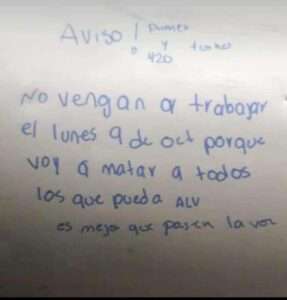 Aviso! Primer
o y turno
420
No vengan a trabajar
el lunes 9 de oct porque
voy a matar a todos
los que pueda ALV
es mejor que pasen la voz